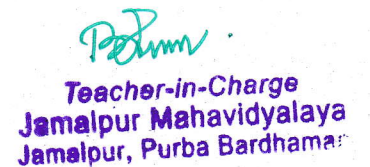 Teacher-in-Charge
Jamalpur Mahavidyalaya
Jamalpur, Purba Bardhaman